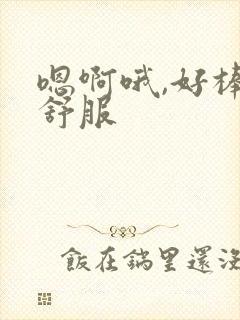 嗯啊哦,好棒
舒服
飯在鍋里還沒